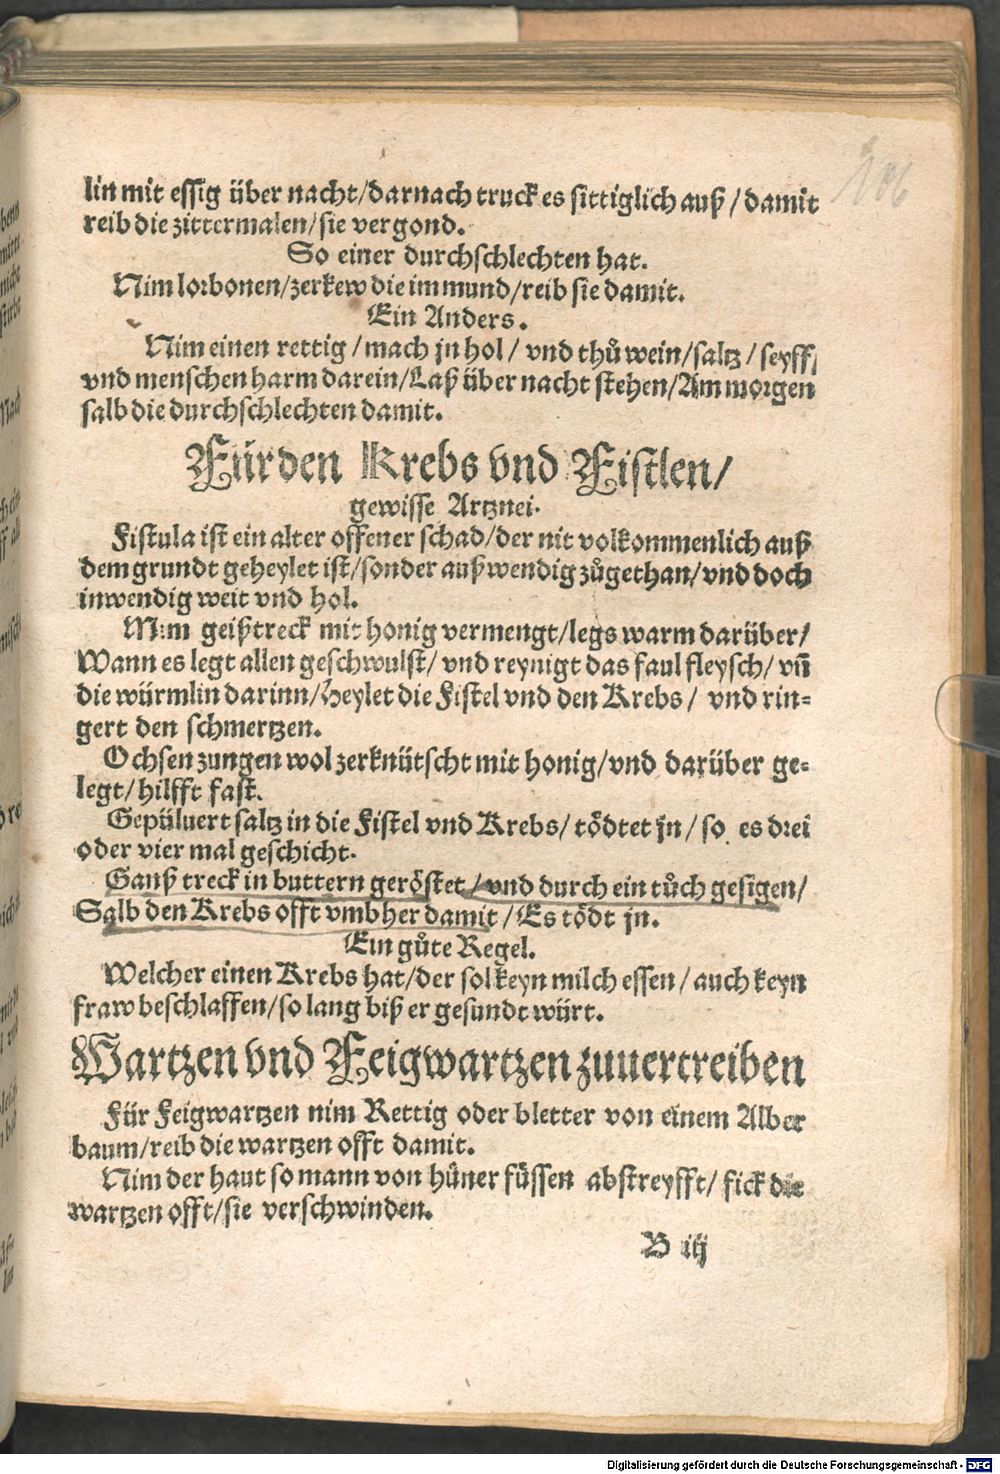 lin mit essig über nacht/darnach truck es sittiglich auß/damit
reib die zittermalen/sie vergond.
So einer durchschlechten hat.
Nim lorbonen/zerkew die im mund/reib sie damit.
Ein Anders.
Nim einen rettig/mach jn hol/ vnd thů wein/saltz/seyff/
vnd menschen harm darein/Laß über nacht stehen/Am morgen
salb die durchschlechten damit.
Für den Krebs vnd Fistlen/
gewisse Artznei.
Fistula ist ein alter offener schad/der nit volkommenlich auß
dem grundt geheylet ist/sonder außwendig zůgethan/vnd doch
inwendig weit vnd hol.
Nim geißtreck mit honig vermengt/legs warm darüber/
Wann es legt allen geschwulst/ vnd reynigt das faul fleysch/ vñ
die würmlin darinn/Heylet die Fistel vnd den Krebs/ vnd rin=
gert den schmertzen.
Ochsen zungen wol zerknütscht mit honig/vnd darüber ge=
legt/hilfft fast.
Gepüluert saltz in die Fistel vnd Krebs/tödtet jn/so es drei
oder vier mal geschicht.
Ganß treck in buttern geröstet/vnd durch ein tůch gesigen/
Salb den Krebs offt vmbher damit/Es tödt jn.
Ein gůte Regel.
Welcher einen Krebs hat/der sol keyn milch essen/auch keyn
fraw beschlaffen/so lang biß er gesundt würt.
Wartzen vnd Feigwartzen zuuertreiben
Für Feigwartzen nim Rettig oder bletter von einem Alber
baum/reib die wartzen offt damit.
Nim der haut so mann von hüner füssen abstreyfft/ fick die
wartzen offt/sie verschwinden.
B iij
Digitalisierung gefördert durch die Deutsche Forschungsgemeinschaft - DFG